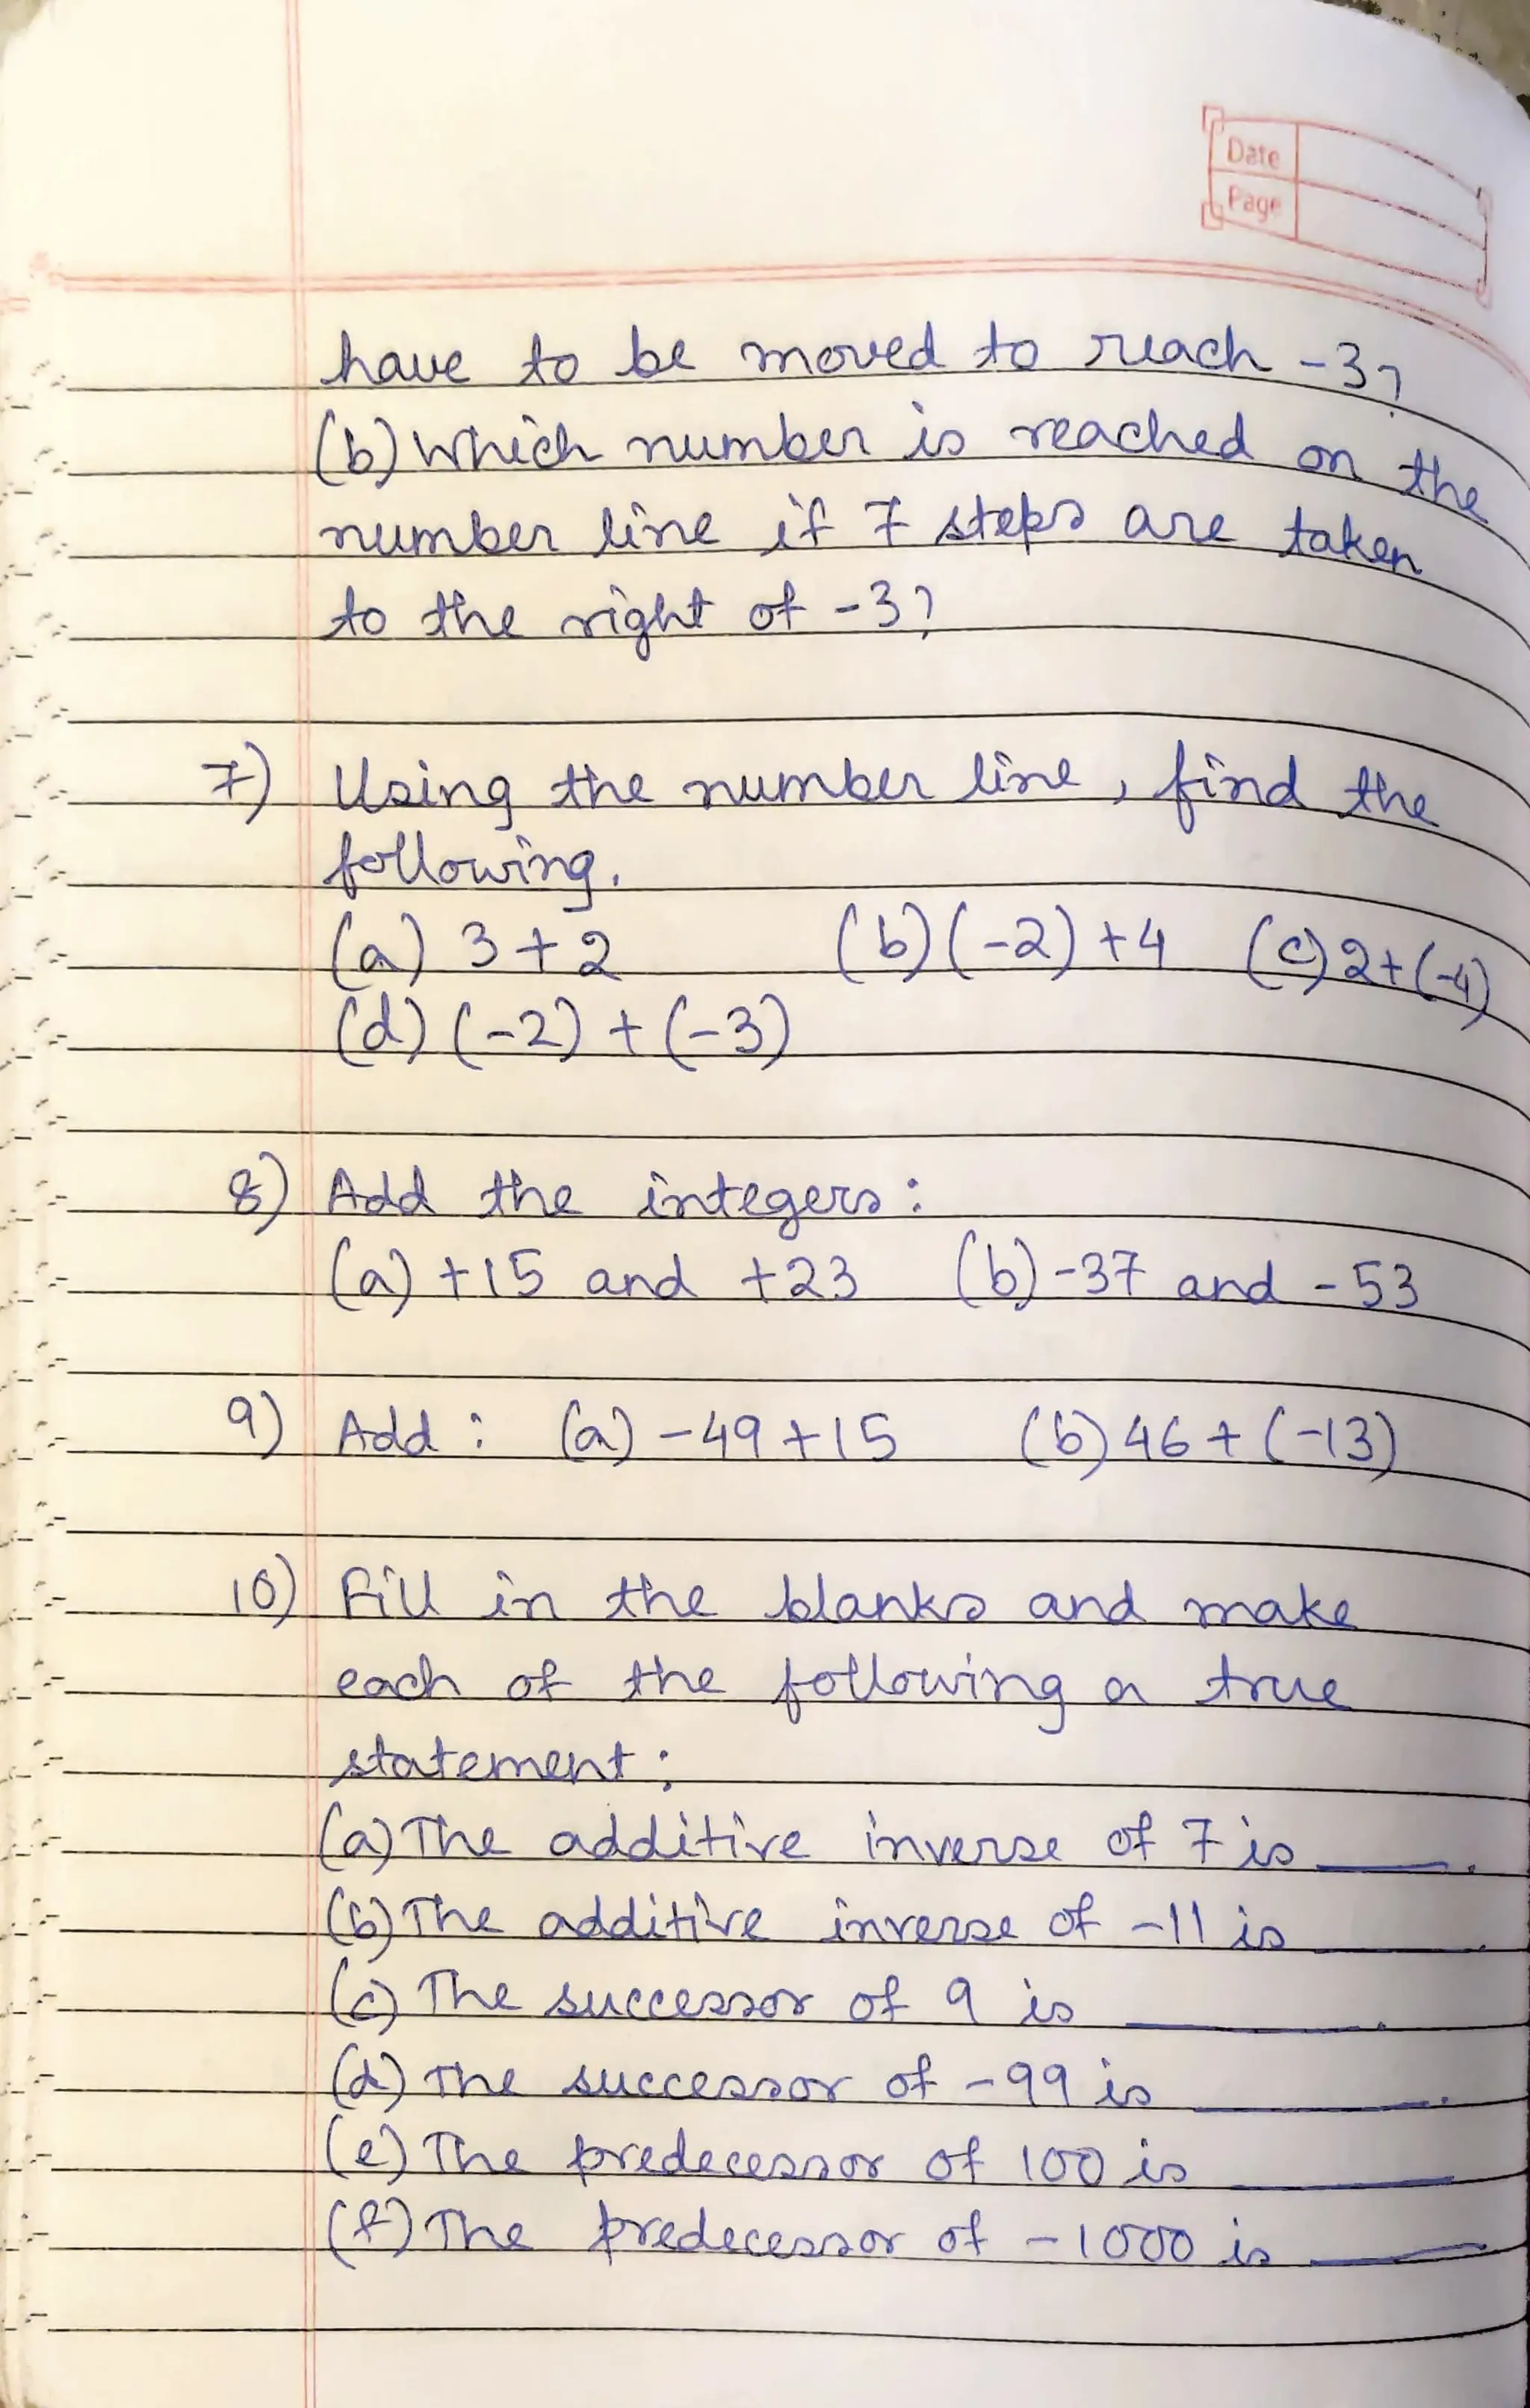 Date
Page
have to be moved to reach -3?
(b) Which number is reached on the
number line if 7 steps are taken
to the right of -3?
7) Using the number line, find the
following.
(a) 3+2 (b) (-2) +4 (c) 2+(-4)
(d) (-2) + (-3)
8) Add the integers:
(a) +15 and +23 (b) -37 and -53
9) Add : (a) -49 +15 (b) 46 + (-13)
10) Fill in the blanks and make
each of the following a true
statement:
(a) The additive inverse of 7 is ____.
(b) The additive inverse of -11 is ____.
(c) The successor of 9 is ____.
(d) The successor of -99 is ____.
(e) The predecessor of 100 is ____
(f) The predecessor of -1000 is ____